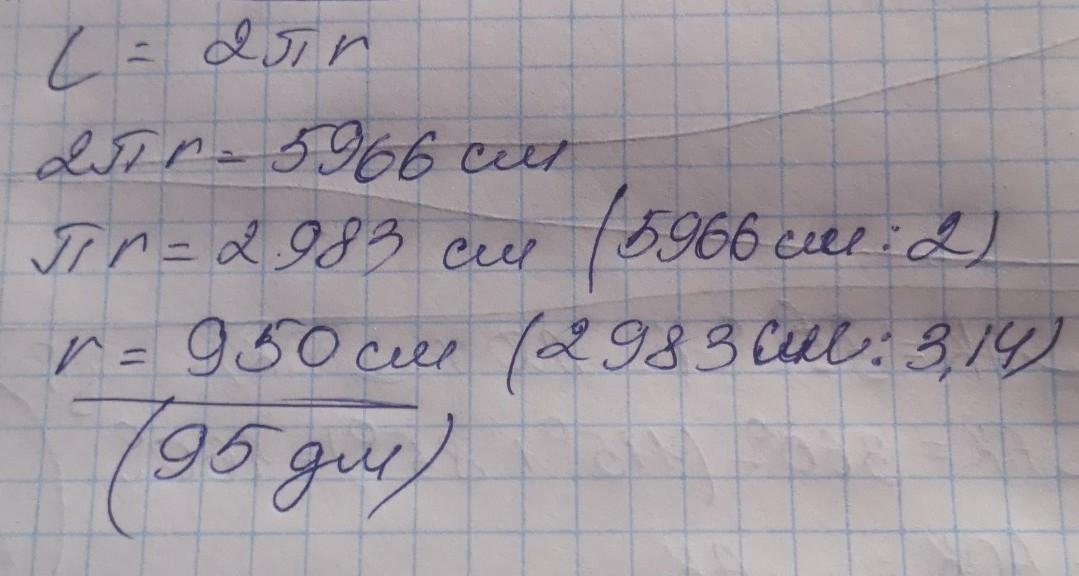 L = 2πr
2πr = 5966 см
πr = 2983 см (5966 см : 2)
r = 950 см (2983 см : 3,14)
(95 дм)